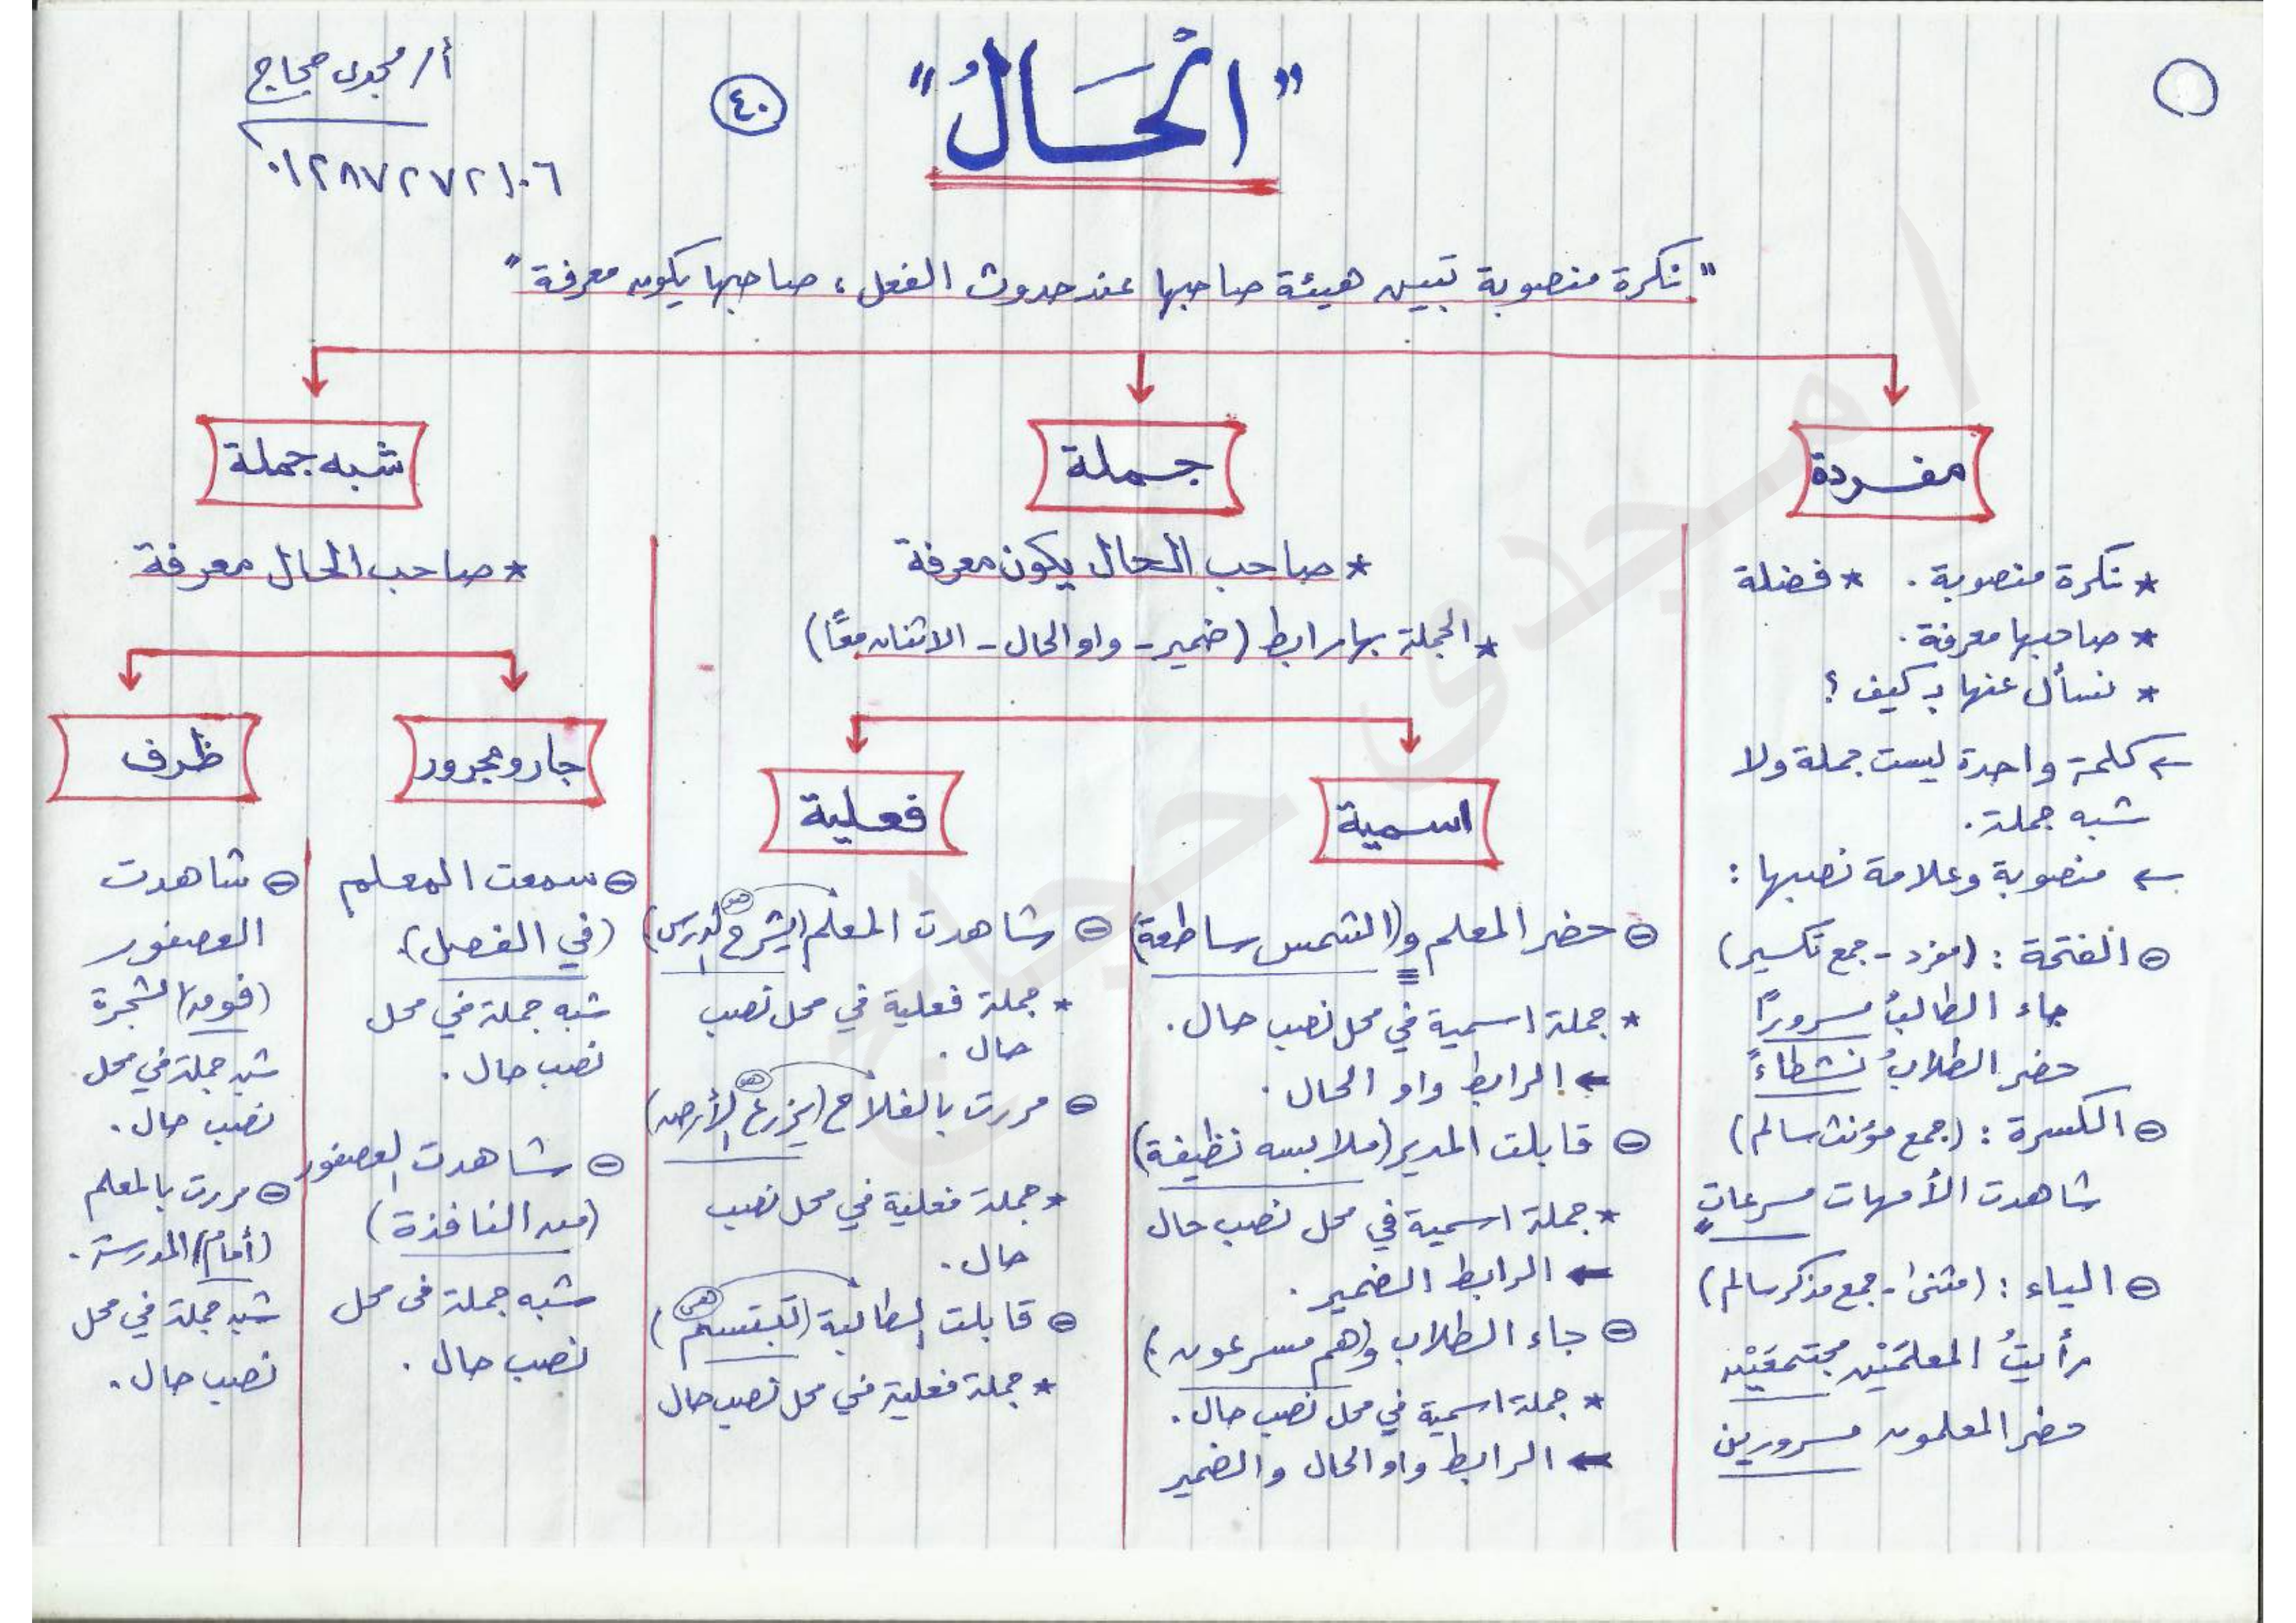 "الْحَالُ"
٤٠
أ/ مجدى حجاج
٠١٢٨٧٢٧٢١٠٦
"نكرة منصوبة تبين هيئة صاحبها عند حدوث الفعل ، صاحبها يكون معرفة"
مفردة
* نكرة منصوبة . * فضلة
* صاحبها معرفة .
* نسأل عنها بـ كيف ؟
← كلمة واحدة ليست جملة ولا
شبه جملة .
← منصوبة وعلامة نصبها :
⊖ الفتحة : (مفرد - جمع تكسير)
جاء الطالبُ مسرورًا
حضر الطلابُ نشطاءً
⊖ الكسرة : (جمع مؤنث سالم)
شاهدت الأمهات مسرعاتٍ
⊖ الياء : (مثنى - جمع مذكر سالم)
رأيتُ المعلمَيْن مجتمعَيْن
حضر المعلمون مسرورين
جملة
* صاحب الحال يكون معرفة
* الجملة بها رابط (ضمير - واو الحال - الاثنان معًا)
اسمية
⊖ حضر المعلم و(الشمس ساطعة)
* جملة اسمية في محل نصب حال .
← الرابط واو الحال .
⊖ قابلت المدير (ملابسه نظيفة)
* جملة اسمية في محل نصب حال
← الرابط الضمير .
⊖ جاء الطلاب (وهم مسرعون)
* جملة اسمية في محل نصب حال .
← الرابط واو الحال والضمير
فعلية
هو
⊖ شاهدت المعلم (يشرح الدرس)
* جملة فعلية في محل نصب
حال .
هو
⊖ مررت بالفلاح (يزرع الأرض)
* جملة فعلية في محل نصب
حال .
هى
⊖ قابلت الطالبة (تبتسم)
* جملة فعلية في محل نصب حال
شبه جملة
* صاحب الحال معرفة
جار ومجرور
⊖ سمعت المعلم
(في الفصل).
شبه جملة في محل
نصب حال .
⊖ شاهدت العصفور
(من النافذة)
شبه جملة فى محل
نصب حال .
ظرف
⊖ شاهدت
العصفور
(فوق) الشجرة
شبه جملة في محل
نصب حال .
⊖ مررت بالمعلم
(أمام) المدرسة .
شبه جملة في محل
نصب حال .
أ مجدى حجاج